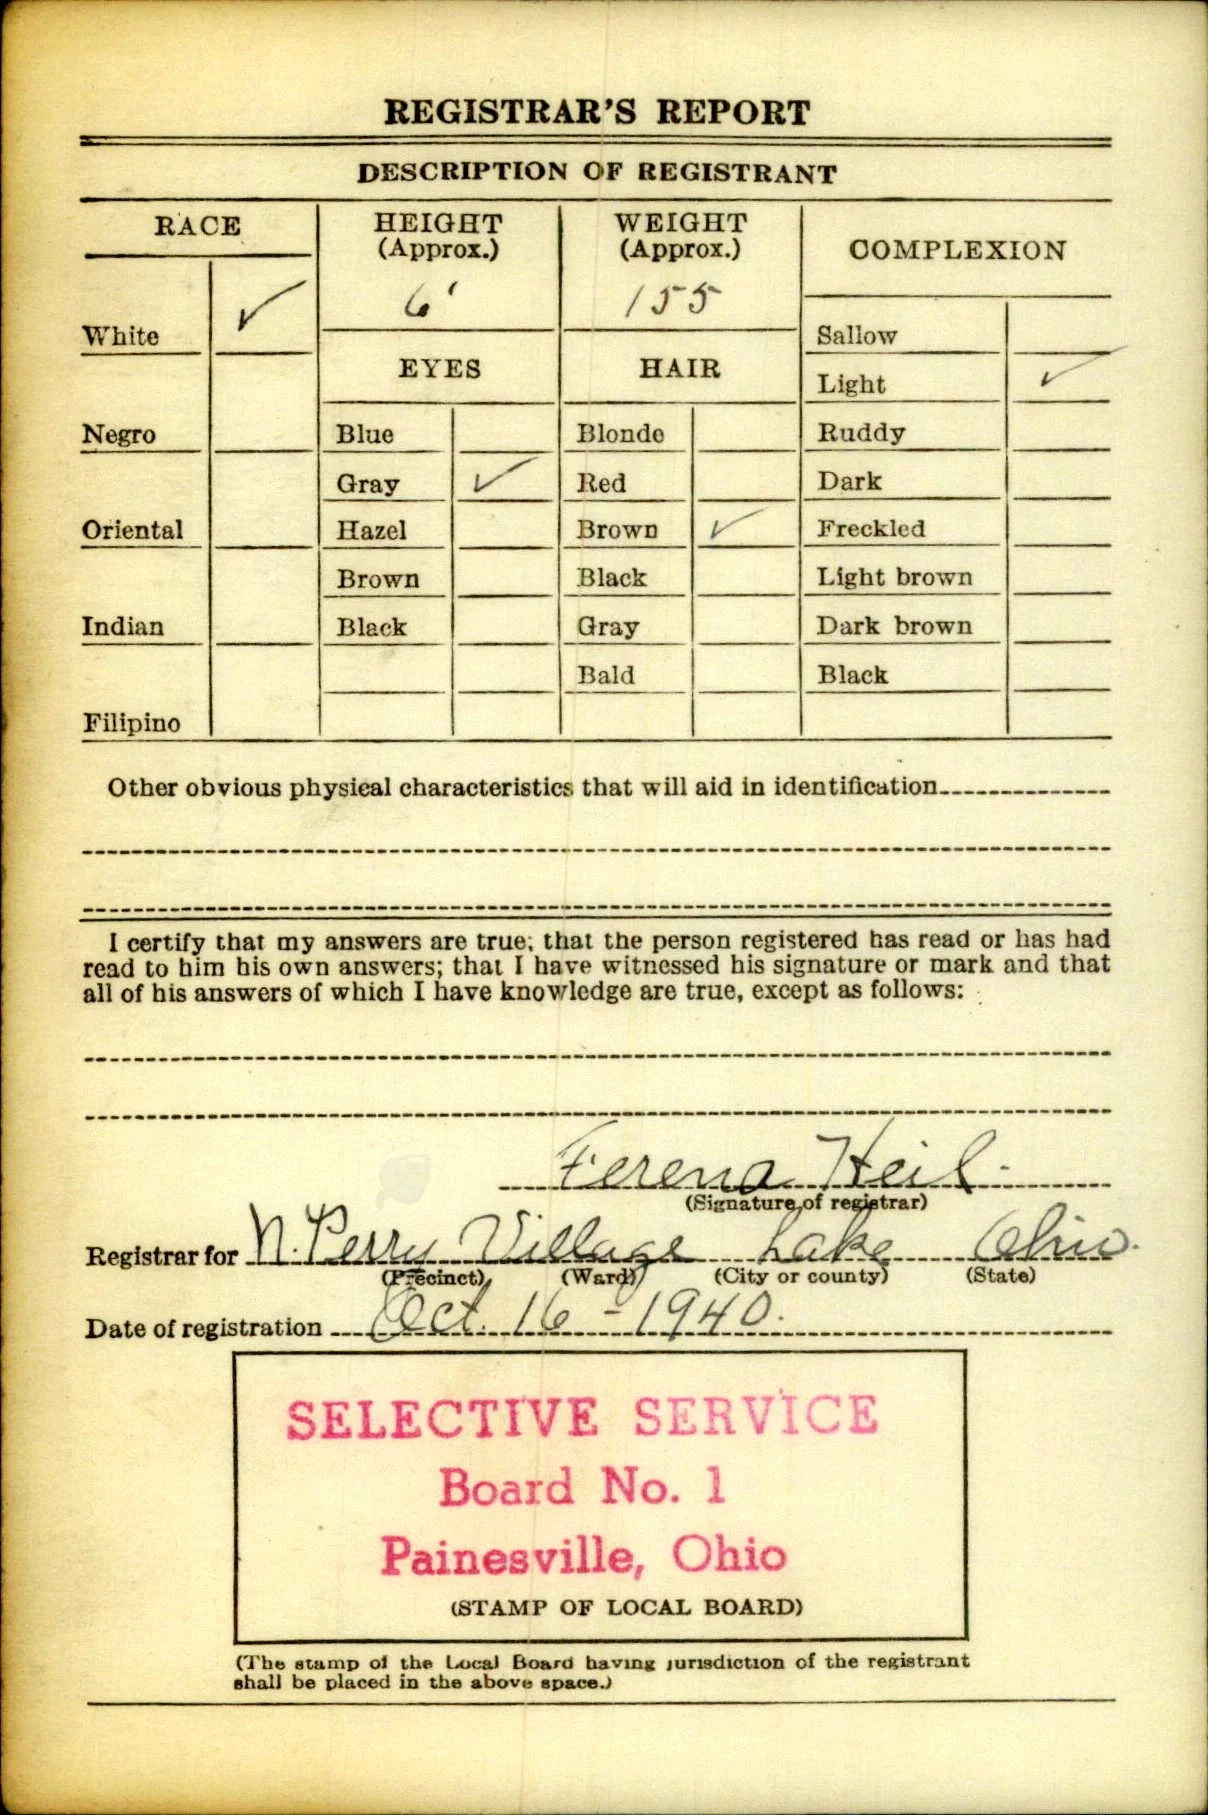 REGISTRAR'S REPORT
DESCRIPTION OF REGISTRANT
RACE
White ✓
Negro
Oriental
Indian
Filipino
HEIGHT
(Approx.)
6'
WEIGHT
(Approx.)
155
EYES
Blue
Gray ✓
Hazel
Brown
Black
HAIR
Blonde
Red
Brown ✓
Black
Gray
Bald
COMPLEXION
Sallow
Light ✓
Ruddy
Dark
Freckled
Light brown
Dark brown
Black
Other obvious physical characteristics that will aid in identification
I certify that my answers are true; that the person registered has read or has had
read to him his own answers; that I have witnessed his signature or mark and that
all of his answers of which I have knowledge are true, except as follows:
Ferena Heil
(Signature of registrar)
Registrar for N. Perry Village Lake Ohio.
(Precinct) (Ward) (City or county) (State)
Date of registration Oct. 16 - 1940.
SELECTIVE SERVICE
Board No. 1
Painesville, Ohio
(STAMP OF LOCAL BOARD)
(The stamp of the Local Board having jurisdiction of the registrant
shall be placed in the above space.)